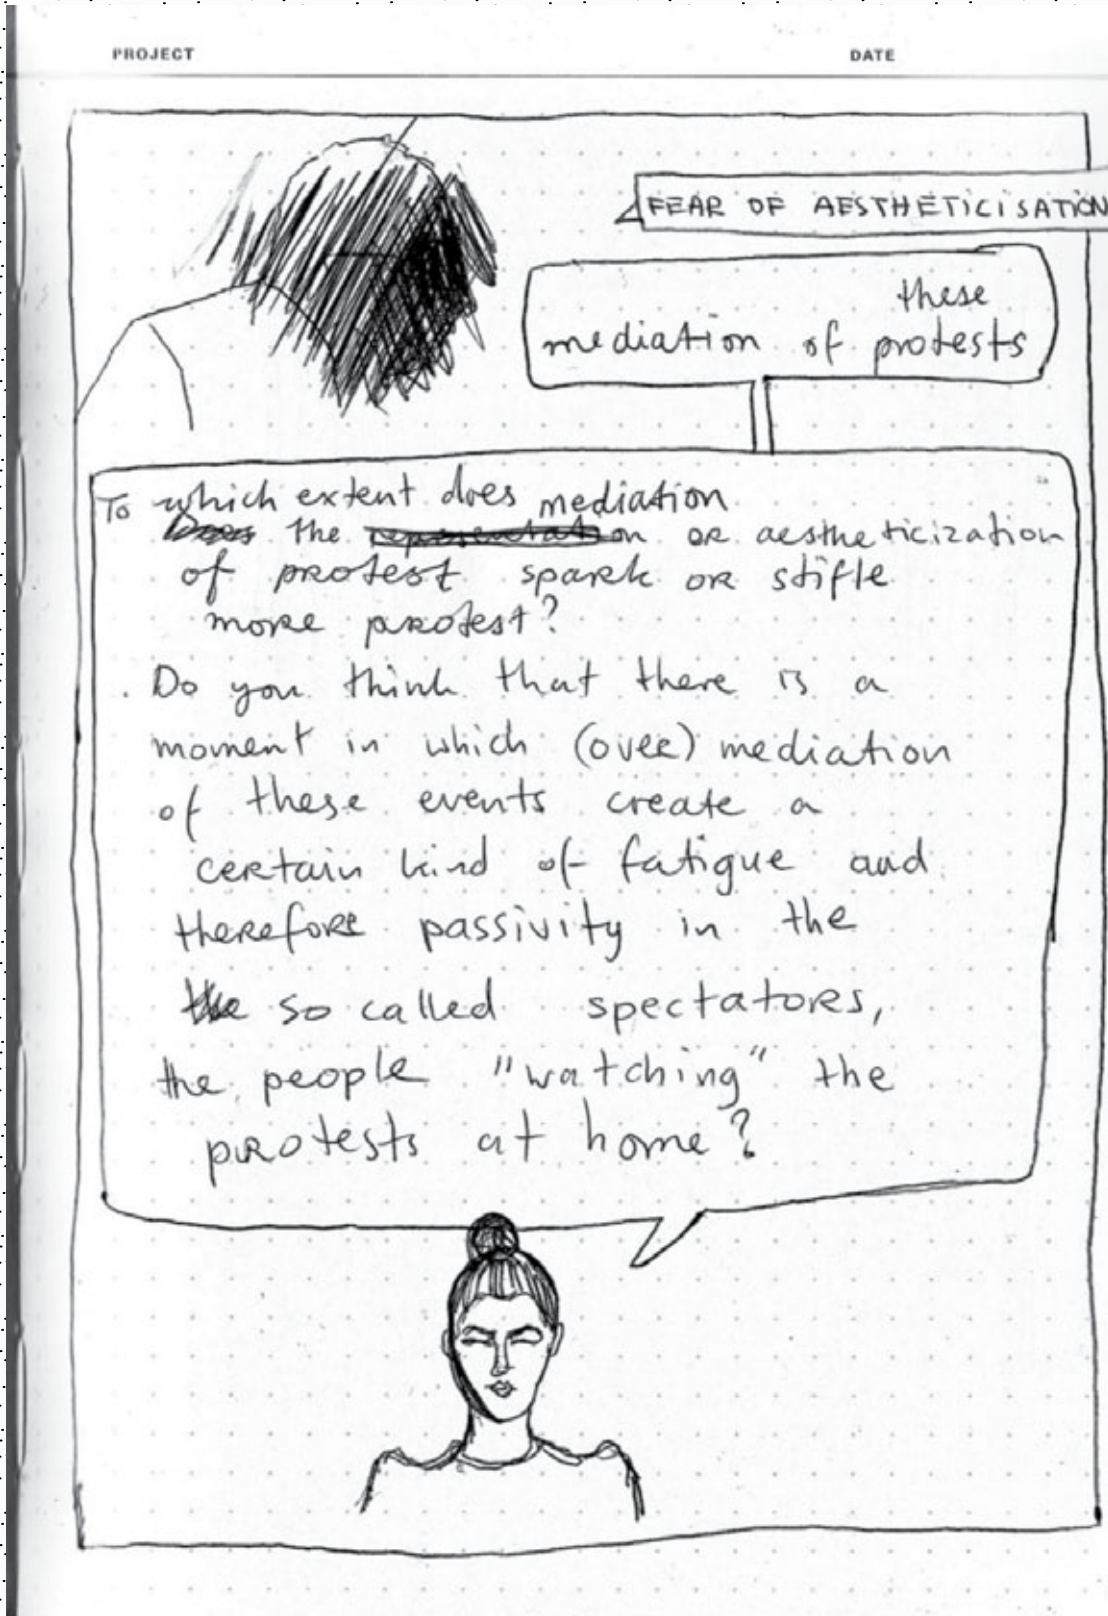 PROJECT DATE
FEAR OF AESTHETICISATION
these
mediation of protests
To which extent does mediation
Does the representation or aestheticization
of protest spark or stifle
more protest?
Do you think that there is a
moment in which (over) mediation
of these events create a
certain kind of fatigue and
therefore passivity in the
the so called spectators,
the people "watching" the
protests at home?